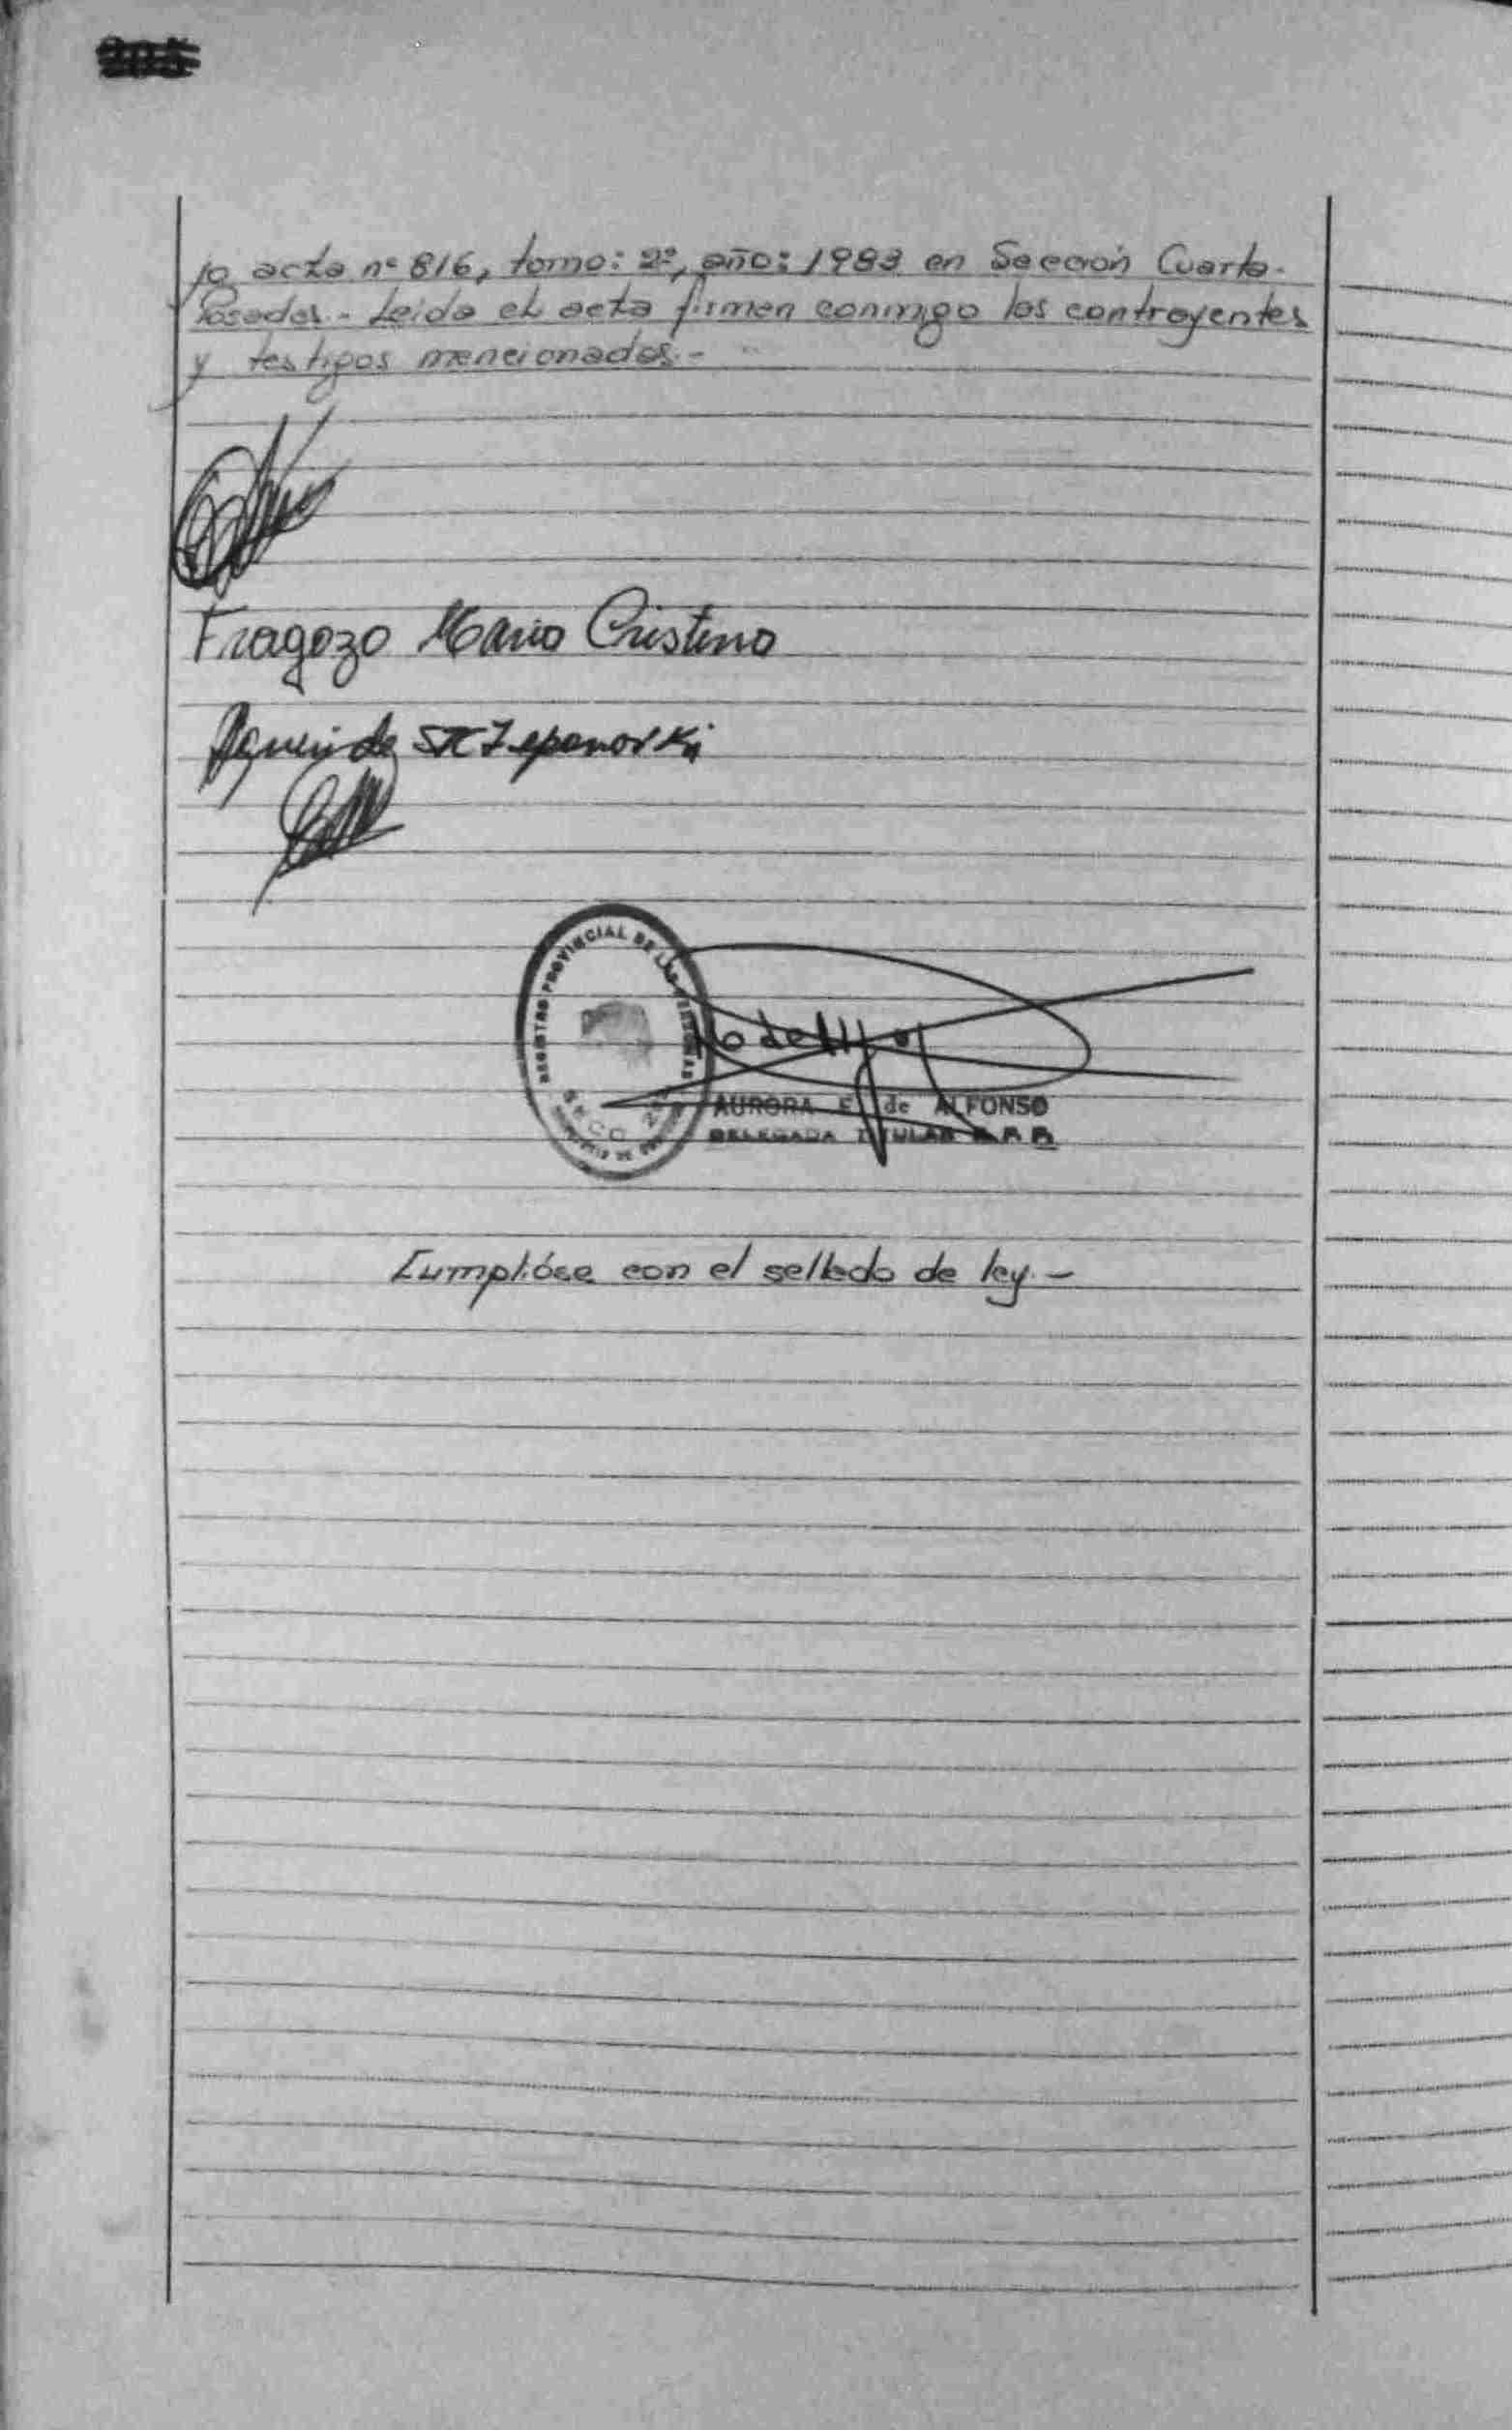 jo acta nº 816, tomo: 2º, año: 1983 en Sección Cuarta.
Posadas.- Leida el acta firman conmigo los contrayentes
y testigos mencionados.-
Fragozo Maria Cristina
de
REGISTRO PROVINCIAL DE LAS PERSONAS
SECC.
AURORA F. de ALFONSO
DELEGADA TITULAR R P P
Cumplióse con el sellado de ley.-